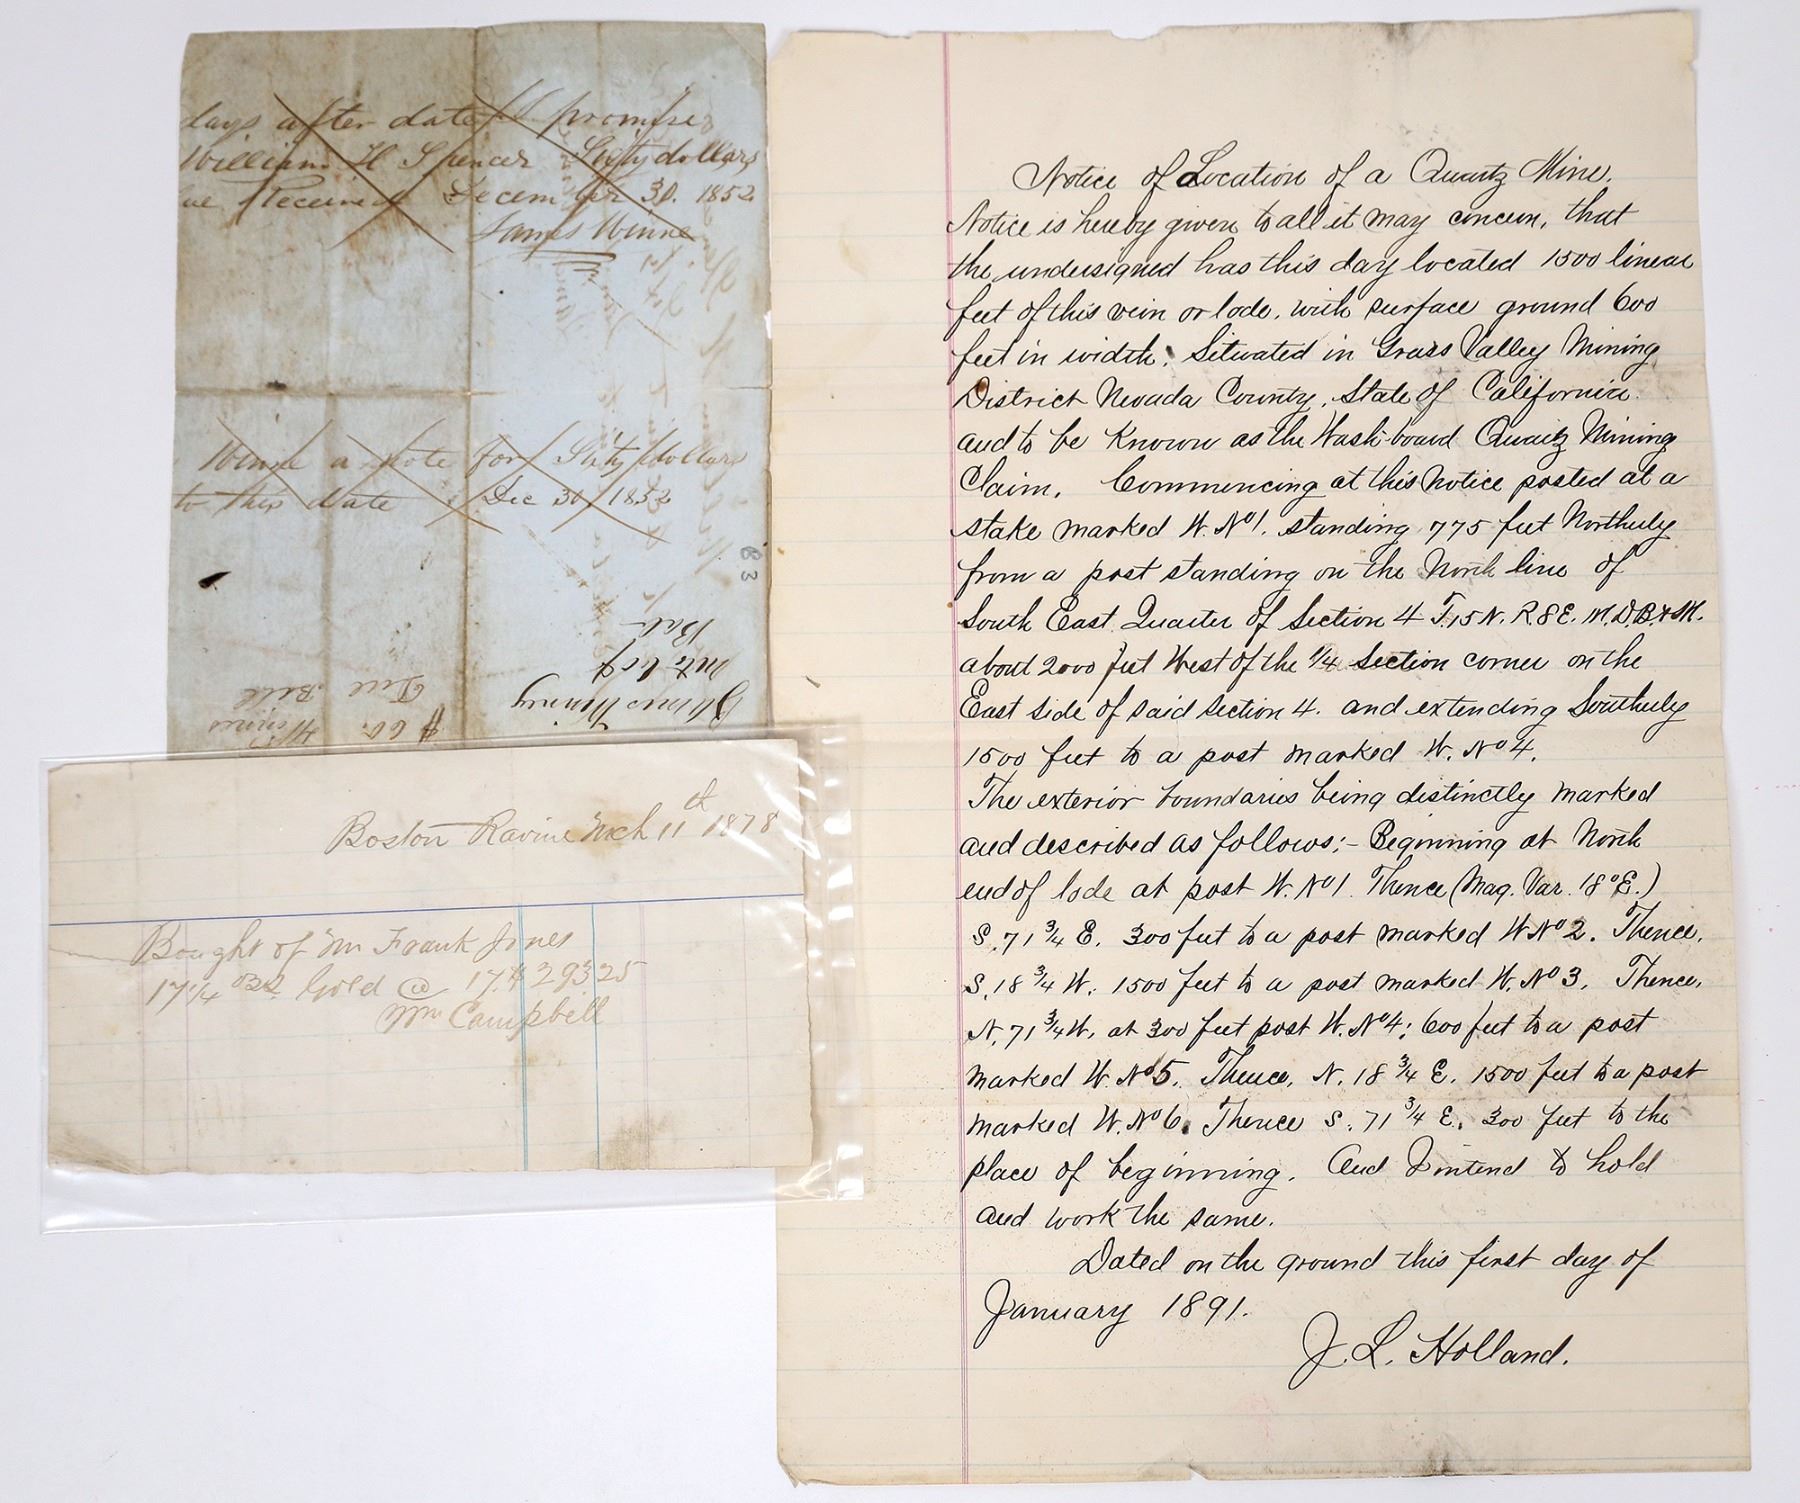 days after date I promise
William H Spencer Sixty dollars
ue Received December 30. 1852
James Winne
Winne a note for Sixty dollars
to this date Dec 30 1852
83
James Winney
Due Bill
$60.
Boston Ravine Mch 11th 1878
Bought of Mr Frank Jones
17 1/4 ozs Gold @ 17.- $293 25
Wm Campbell
Notice of Location of a Quartz Mine.
Notice is hereby given to all it may concern, that
the undersigned has this day located 1500 linear
feet of this vein or lode, with surface ground 600
feet in width. Situated in Grass Valley Mining
District Nevada County, State of California.
and to be known as the Wash-board Quartz Mining
Claim. Commencing at this Notice posted at a
stake marked W. No 1. standing 775 feet Northerly
from a post standing on the North line of
South East Quarter of Section 4 T.15 N. R. 8 E. M.D.B.&M.
about 2000 feet West of the 1/4 Section corner on the
East side of said Section 4. and extending Southerly
1500 feet to a post marked W. No 4.
The exterior boundaries being distinctly marked
and described as follows:- Beginning at North
end of lode at post W. No 1. Thence (Mag. Var. 18° E.)
S. 71 3/4 E. 300 feet to a post marked W No 2. Thence,
S. 18 3/4 W. 1500 feet to a post marked W. No 3. Thence,
N. 71 3/4 W. at 300 feet post W. No 4; 600 feet to a post
marked W. No 5. Thence, N. 18 3/4 E. 1500 feet to a post
marked W. No 6. Thence S. 71 3/4 E. 300 feet to the
place of beginning. And I intend to hold
and work the same.
Dated on the ground this first day of
January 1891.
J. L. Holland.